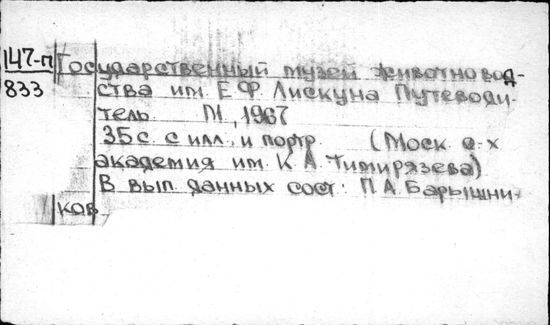 147-п Государственный музей животновод-
833 ства им. Е.Ф. Лискуна Путеводи-
тель. М., 1967
35с. с илл. и портр. (Моск. с-х
академия им. К.А. Тимирязева)
В вып. данных сост: П.А. Барышни-
ков